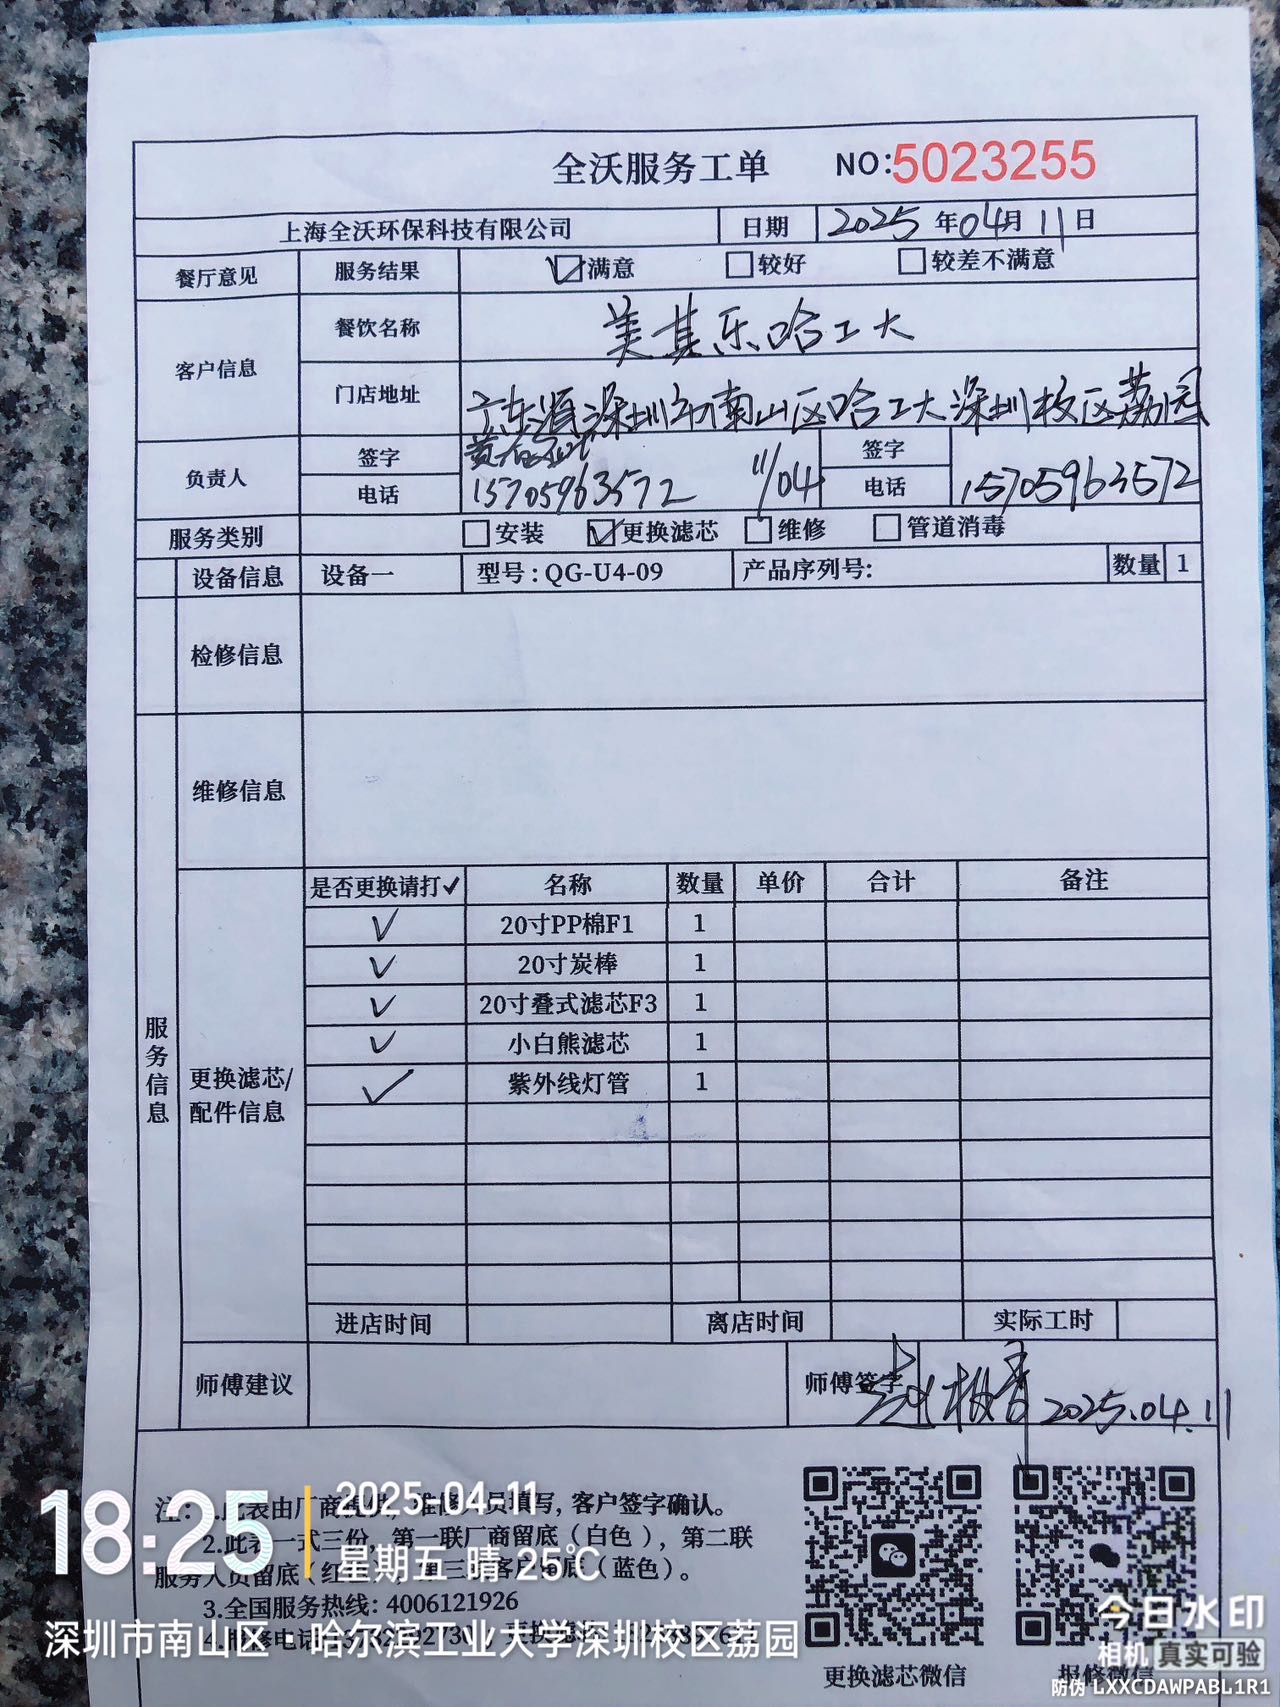 全沃服务工单 NO:5023255
上海全沃环保科技有限公司 日期 2025年04月11日
餐厅意见 服务结果 满意 较好 较差不满意
客户信息 餐饮名称 美其乐哈工大
门店地址 广东省深圳市南山区哈工大深圳校区荔园
负责人 签字 11/04 签字
电话 15705963572 电话 15705963572
服务类别 安装 更换滤芯 维修 管道消毒
设备信息 设备一 型号:QG-U4-09 产品序列号: 数量 1
检修信息
维修信息
服务信息
更换滤芯/
配件信息
是否更换请打✓ 名称 数量 单价 合计 备注
✓ 20寸PP棉F1 1
✓ 20寸炭棒 1
✓ 20寸叠式滤芯F3 1
✓ 小白熊滤芯 1
✓ 紫外线灯管 1
进店时间 离店时间 实际工时
师傅建议 师傅签字 2025.04.11
注:1.此表由厂商提供,维修人员填写,客户签字确认。
2.此表一式三份,第一联厂商留底(白色),第二联
服务人员留底(红色),第三联客户留底(蓝色)。
3.全国服务热线:4006121926
更换滤芯微信 报修微信
18:25
2025.04.11
星期五 晴 25℃
深圳市南山区·哈尔滨工业大学深圳校区荔园
今日水印
相机 真实可验
防伪 LXXCDAWPABL1R1